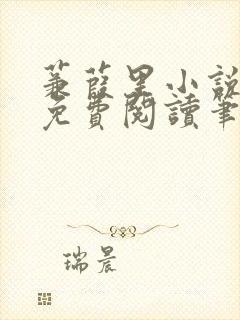 蒹葭里小說
免費閱讀筆
瑞晨